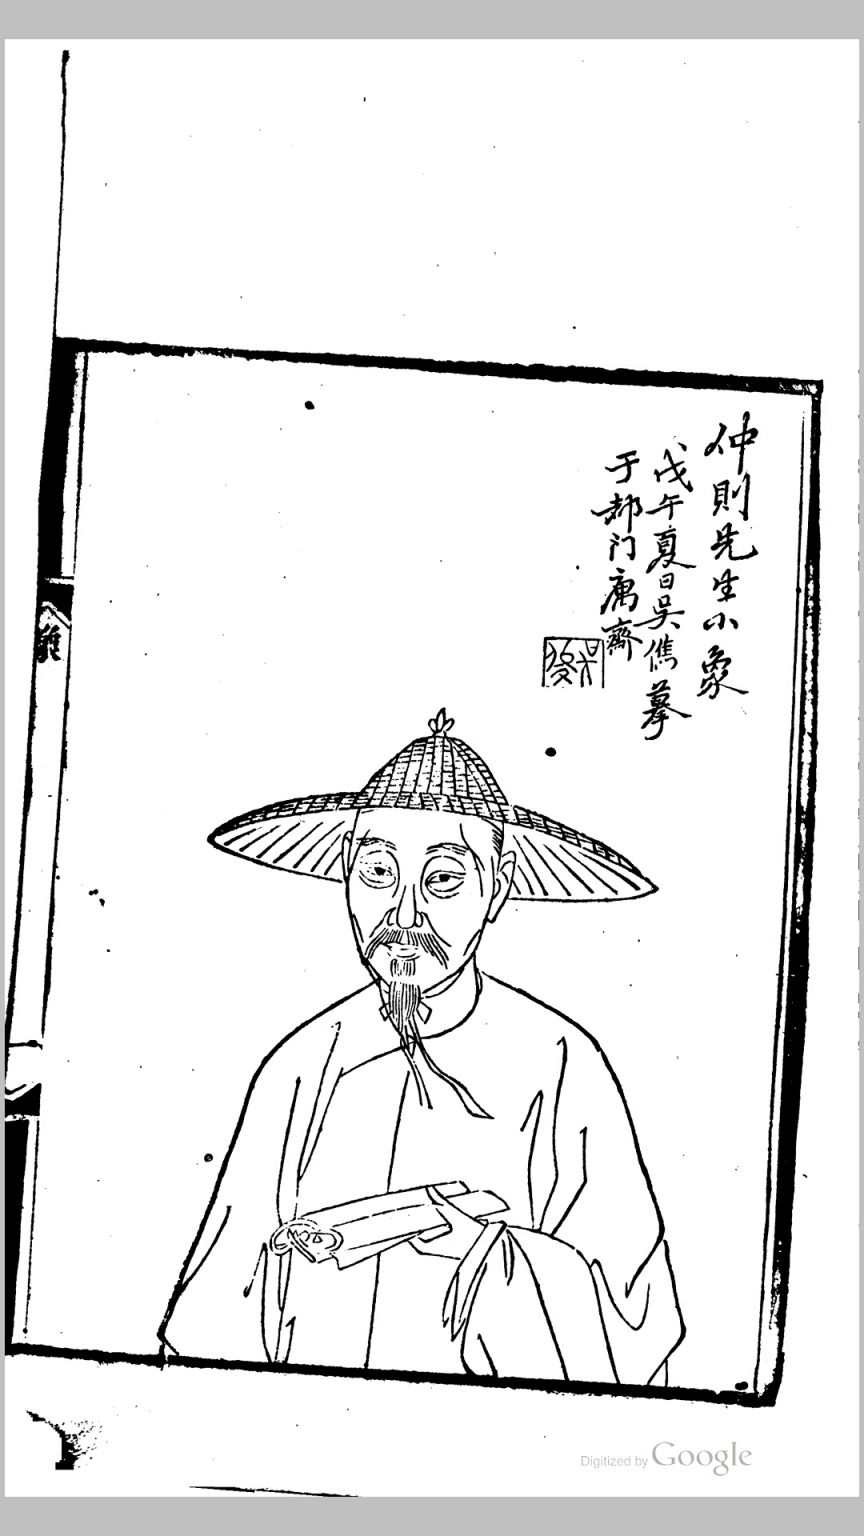 仲則先生小象
戊午夏日吳儁摹
于都门寓齋
Digitized by Google